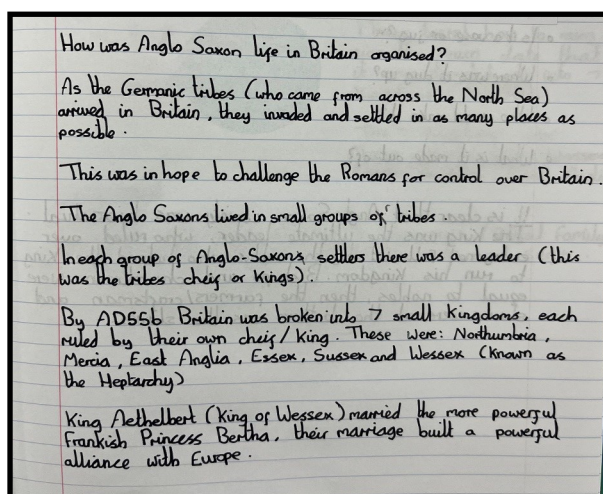 How was Anglo Saxon life in Britain organised?
As the Germanic tribes (who came from across the North Sea)
arrived in Britain, they invaded and settled in as many places as
possible.
This was in hope to challenge the Romans for control over Britain.
The Anglo Saxons lived in small groups of tribes.
In each group of Anglo-Saxons settlers there was a leader (this
was the tribes cheif or Kings).
By AD556 Britain was broken into 7 small kingdoms, each
ruled by their own cheif/King. These were: Northumbria,
Mercia, East Anglia, Essex, Sussex and Wessex (Known as
the Heptarchy)
King Aethelbert (King of Wessex) married the more powerful
Frankish Princess Bertha, their marriage built a powerful
alliance with Europe.